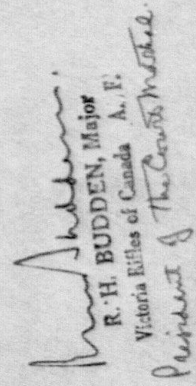 R. H. BUDDEN, Major
Victoria Rifles of Canada A. F.
President of The Court Martial.